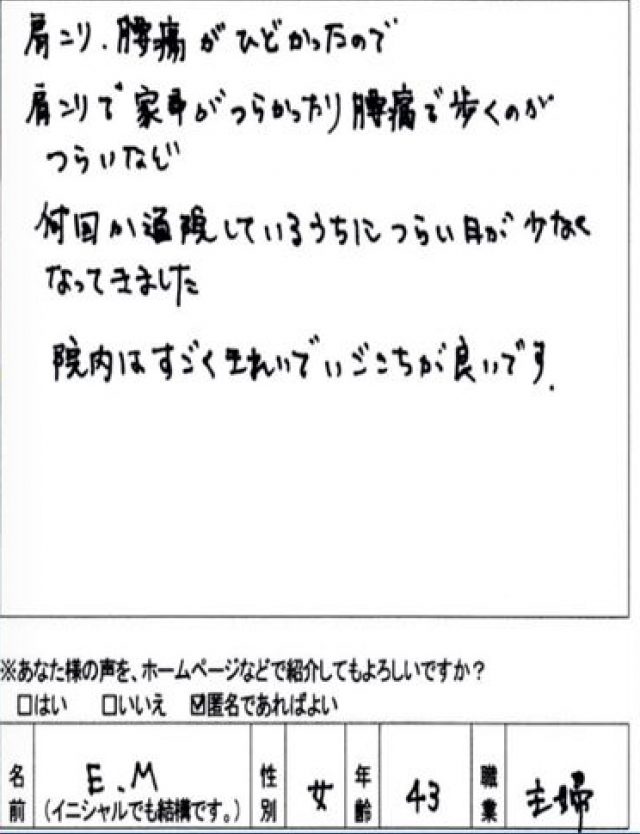 肩こり、腰痛がひどかったので
肩こりで家事がつらかったり腰痛で歩くのが
つらいなど
何回か通院しているうちにつらい日が少なく
なってきました
院内はすごくきれいでいごこちが良いです.
※あなた様の声を、ホームページなどで紹介してもよろしいですか?
□はい □いいえ ☑匿名であればよい
名前 E.M (イニシャルでも結構です。) 性別 女 年齢 43 職業 主婦